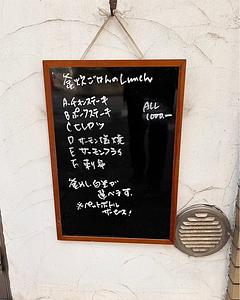 釜炊ごはんのLunch
A.チキンステーキ
B ポークステーキ
C ヒレカツ
D サーモン塩焼
E サーモンフライ
F. 刺身
ALL
1000.-
釜めし 白米が
選べます.
※ペットボトル
サービス!